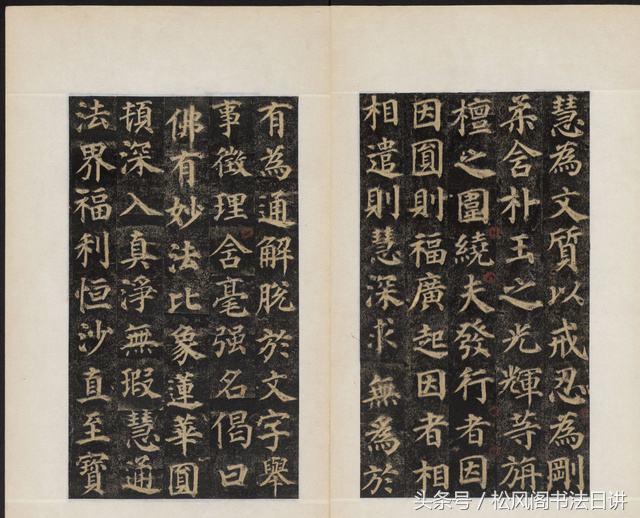 慧為文質以戒忍為剛
柔含朴玉之光輝等旃
檀之圍繞夫發行者因
因圓則福廣起因者相
相遣則慧深求無為於
有為通解脫於文字舉
事徵理含毫強名偈曰
佛有妙法比象蓮華圓
頓深入真淨無瑕慧通
法界福利恒沙直至寶
头条号/松风阁书法日讲